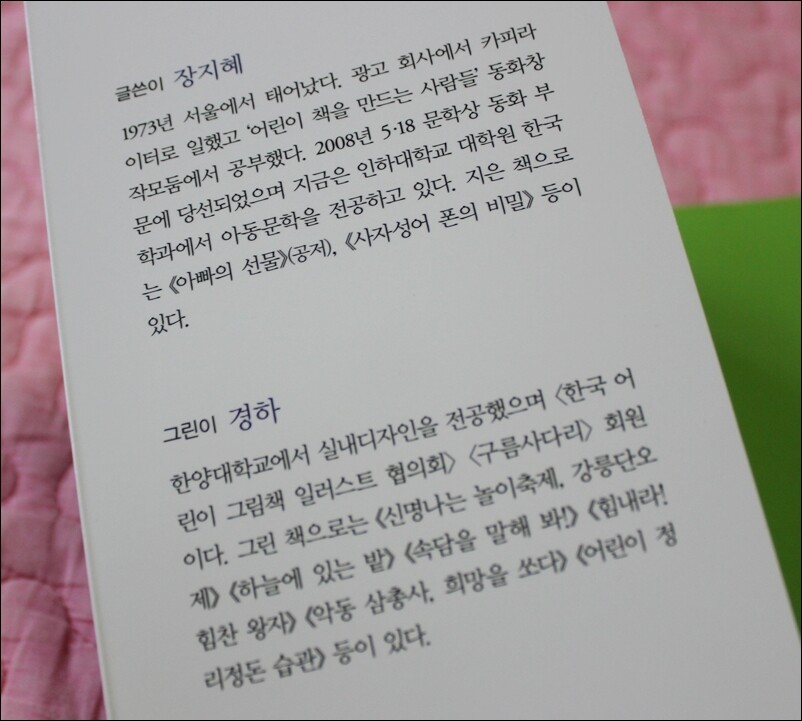 글쓴이 장지혜
1973년 서울에서 태어났다. 광고 회사에서 카피라
이터로 일했고 '어린이 책을 만드는 사람들' 동화창
작모둠에서 공부했다. 2008년 5·18 문학상 동화 부
문에 당선되었으며 지금은 인하대학교 대학원 한국
학과에서 아동문학을 전공하고 있다. 지은 책으로
는 《아빠의 선물》(공저), 《사자성어 폰의 비밀》 등이
있다.
그린이 경하
한양대학교에서 실내디자인을 전공했으며 〈한국 어
린이 그림책 일러스트 협의회〉 〈구름사다리〉 회원
이다. 그린 책으로는 《신명나는 놀이축제, 강릉단오
제》 《하늘에 있는 밭》 《속담을 말해 봐!》 《힘내라!
힘찬 왕자》 《악동 삼총사, 희망을 쏘다》 《어린이 정
리정돈 습관》 등이 있다.